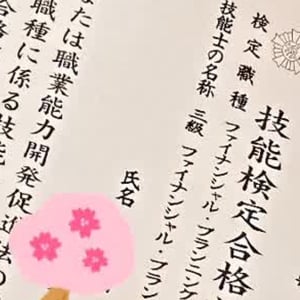 技能検定合格
検定職種 ファイナンシャル・プランニング
技能士の名称 三級 ファイナンシャル・プラン
氏名
たは職業能力開発促進法の
職種に係る技能
合格